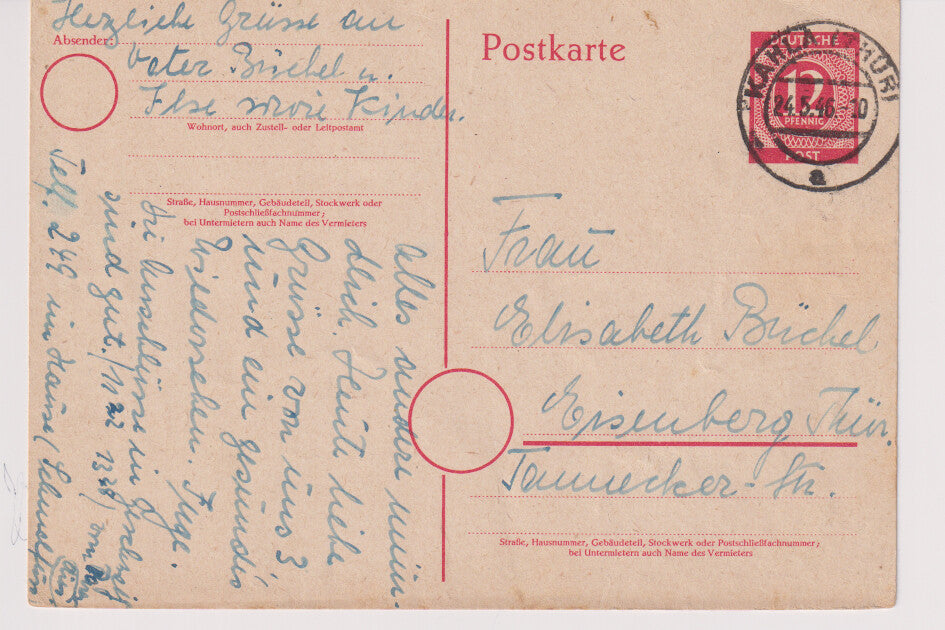 Herzliche Grüsse an
Absender:
Vater Büchel u.
Else sowie Kinder.
Wohnort, auch Zustell- oder Leitpostamt
Straße, Hausnummer, Gebäudeteil, Stockwerk oder
Postschließfachnummer;
bei Untermietern auch Name des Vermieters
alles andere münd-
lich. Heute liebe
Grüsse von uns 3
und ein gesundes
Wiedersehen.
Die Anschlüsse in
sind gut.
Telf. 249 im Hause
Postkarte
DEUTSCHE
12
PFENNIG
POST
KAHLA (THÜR)
24.5.46
a
Frau
Elisabeth Büchel
Eisenberg Thür.
Tannecker-Str.
Straße, Hausnummer, Gebäudeteil, Stockwerk oder Postschließfachnummer;
bei Untermietern auch Name des Vermieters